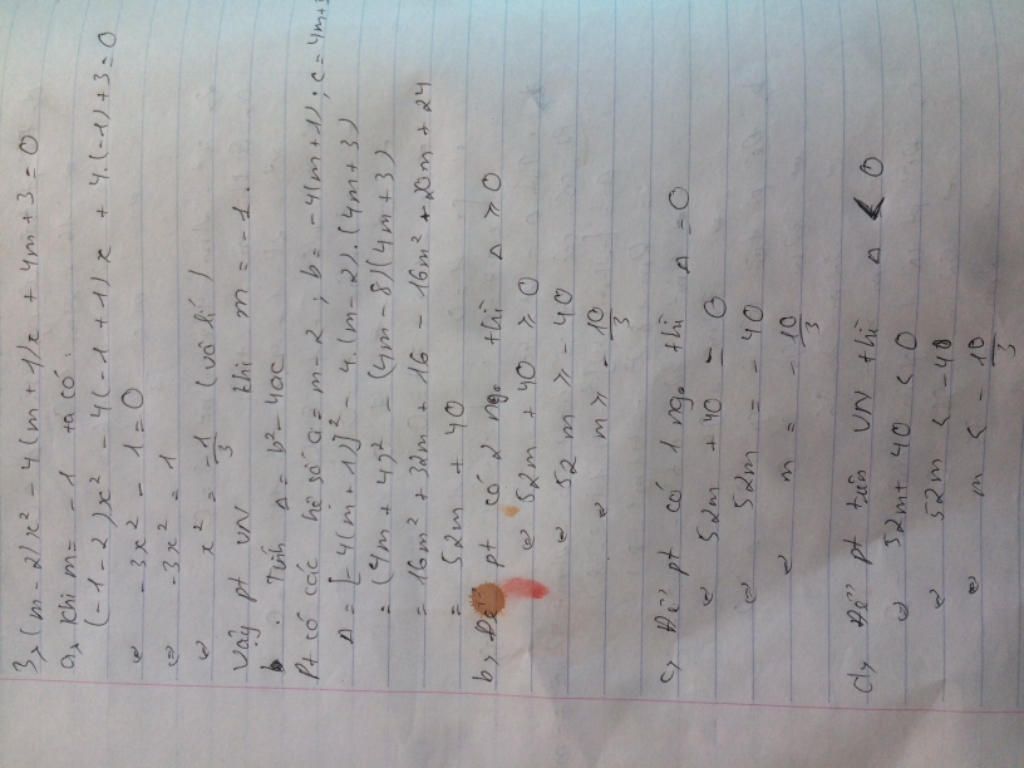 3, (m-2)x² - 4(m+1)x + 4m+3 = 0
a, Khi m = -1 ta có:
(-1-2)x² - 4(-1+1)x + 4.(-1)+3 = 0
⇔ -3x² - 1 = 0
⇔ -3x² = 1
⇔ x² = -1/3 (vô lí)
Vậy pt VN khi m = -1.
b. Tính Δ = b² - 4ac
Pt có các hệ số a = m-2; b = -4(m+1); c = 4m+3
Δ = [-4(m+1)]² - 4.(m-2).(4m+3)
= (4m+4)² - (4m-8)(4m+3)
= 16m² + 32m + 16 - 16m² + 20m + 24
= 52m + 40
b, Để pt có 2 ngo thì Δ ≥ 0
⇔ 52m + 40 ≥ 0
⇔ 52m ≥ -40
⇔ m ≥ -10/3
c, Để pt có 1 ngo thì Δ = 0
⇔ 52m + 40 = 0
⇔ 52m = -40
⇔ m = -10/3
d, Để pt trên VN thì Δ < 0
⇔ 52m + 40 < 0
⇔ 52m < -40
⇔ m < -10/3